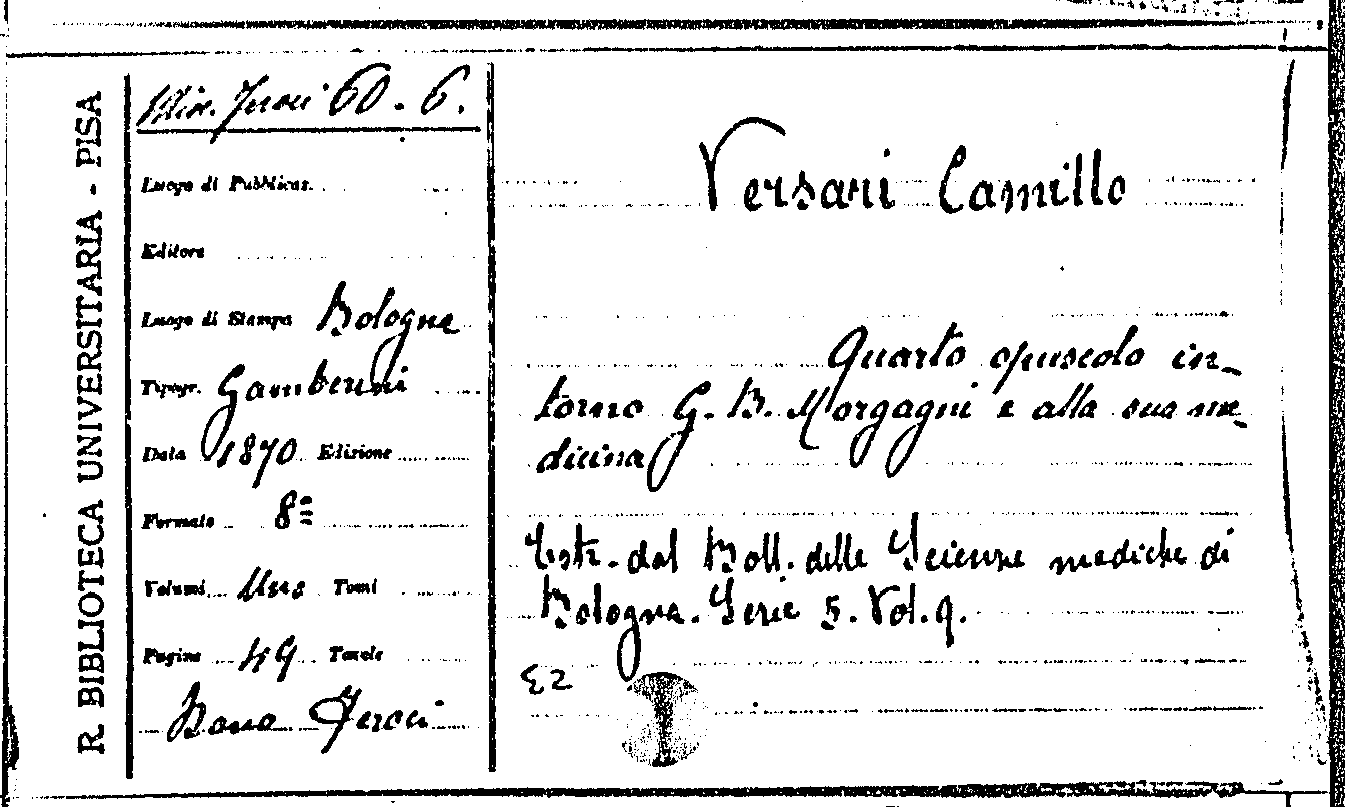 R. BIBLIOTECA UNIVERSITARIA - PISA
Misc. Feroci 60. 6.
Luogo di Pubblicaz.
Editore
Luogo di Stampa Bologna
Tipogr. Gamberini
Data 1870 Edizione
Formato 8º
Volumi Uno Tomi
Pagine 49 Tavole
Dono Feroci
Versari Camillo
Quarto opuscolo in-
torno G. B. Morgagni e alla sua me-
dicina
Estr. dal Boll. delle Scienze mediche di
Bologna. Serie 5. Vol. 9.